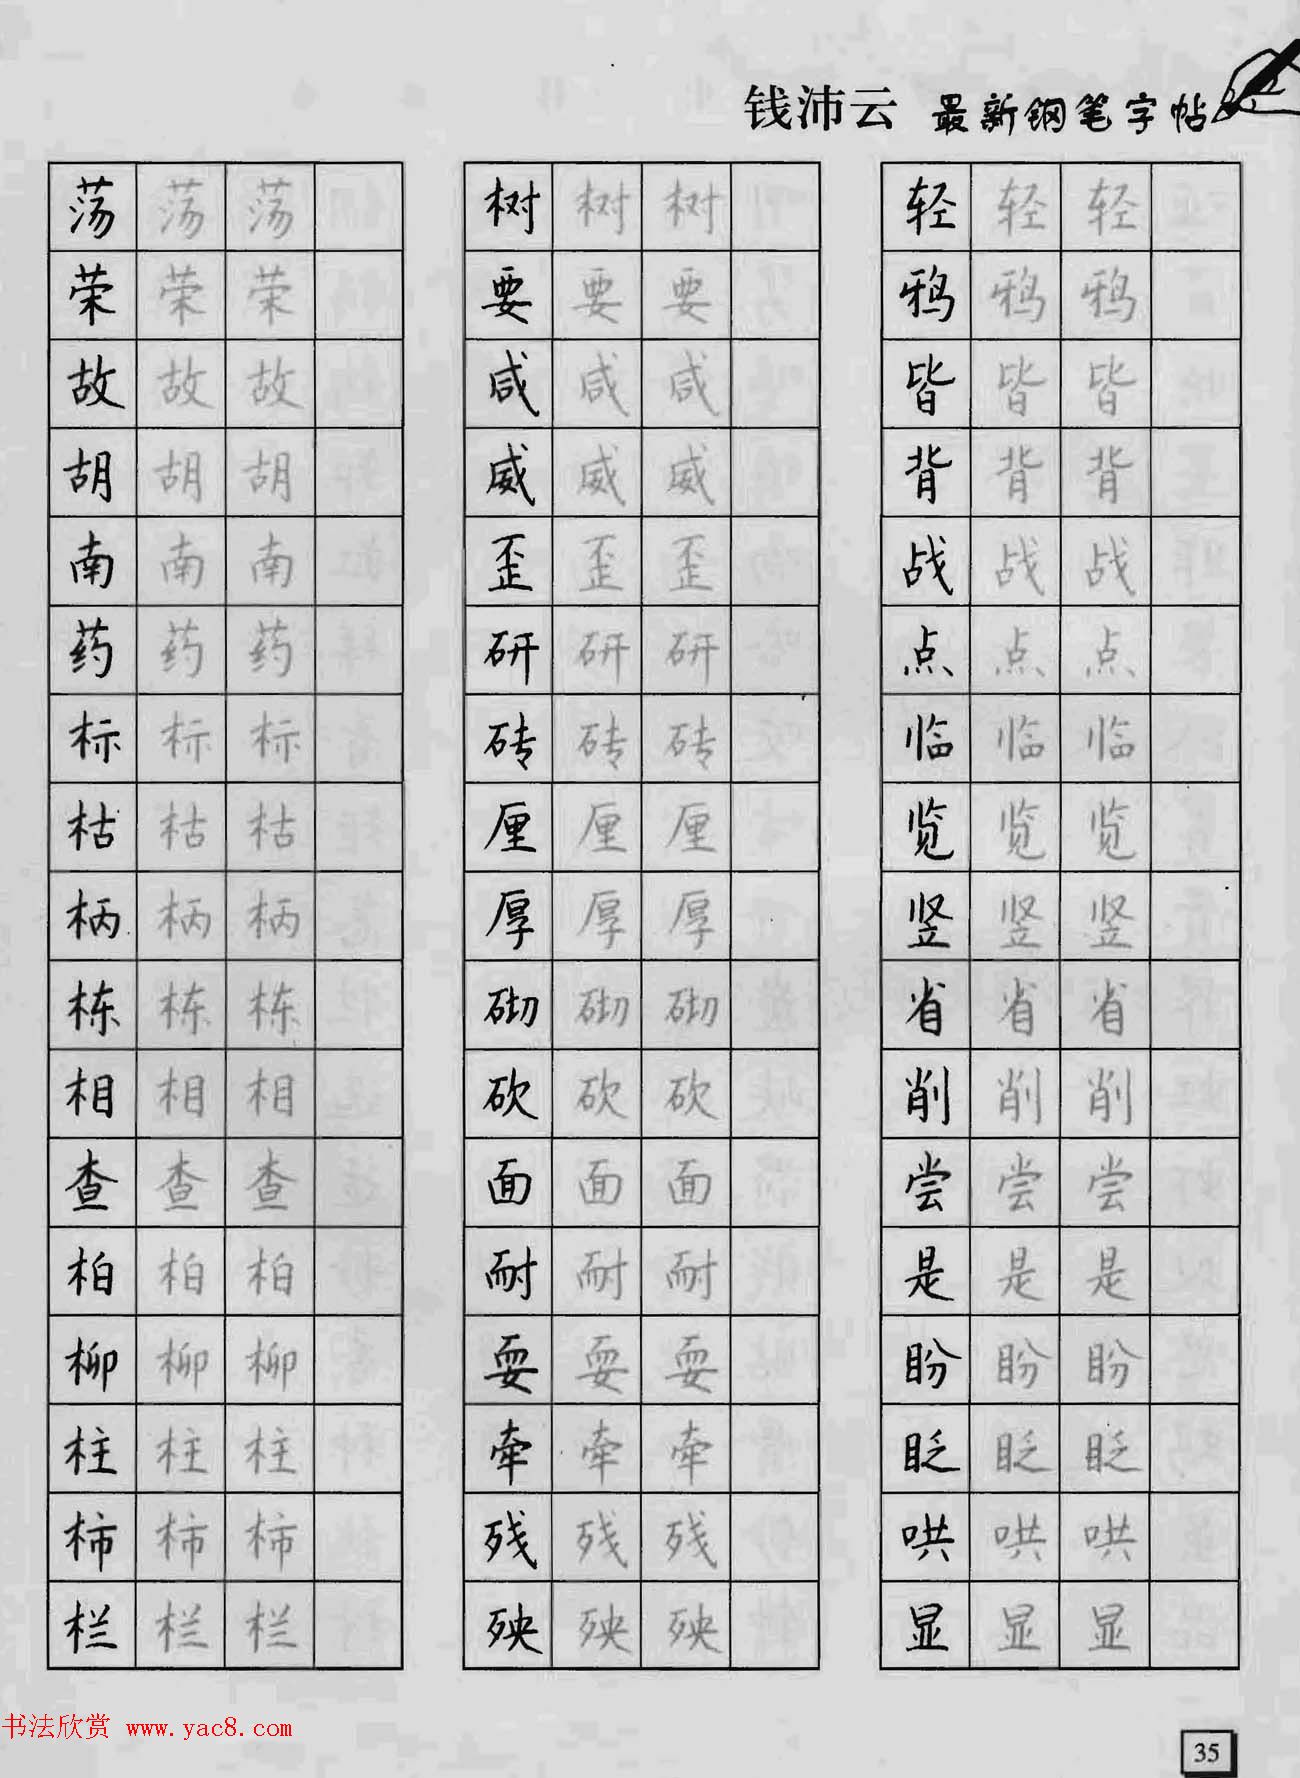 钱沛云 最新钢笔字帖
荡 荡 荡 树 树 树 轻 轻 轻
荣 荣 荣 要 要 要 鸦 鸦 鸦
故 故 故 咸 咸 咸 皆 皆 皆
胡 胡 胡 威 威 威 背 背 背
南 南 南 歪 歪 歪 战 战 战
药 药 药 研 研 研 点 点 点
标 标 标 砖 砖 砖 临 临 临
枯 枯 枯 厘 厘 厘 览 览 览
柄 柄 柄 厚 厚 厚 竖 竖 竖
栋 栋 栋 砌 砌 砌 省 省 省
相 相 相 砍 砍 砍 削 削 削
查 查 查 面 面 面 尝 尝 尝
柏 柏 柏 耐 耐 耐 是 是 是
柳 柳 柳 耍 耍 耍 盼 盼 盼
柱 柱 柱 牵 牵 牵 眨 眨 眨
柿 柿 柿 残 残 残 哄 哄 哄
栏 栏 栏 殃 殃 殃 显 显 显
书法欣赏 www.yac8.com
35